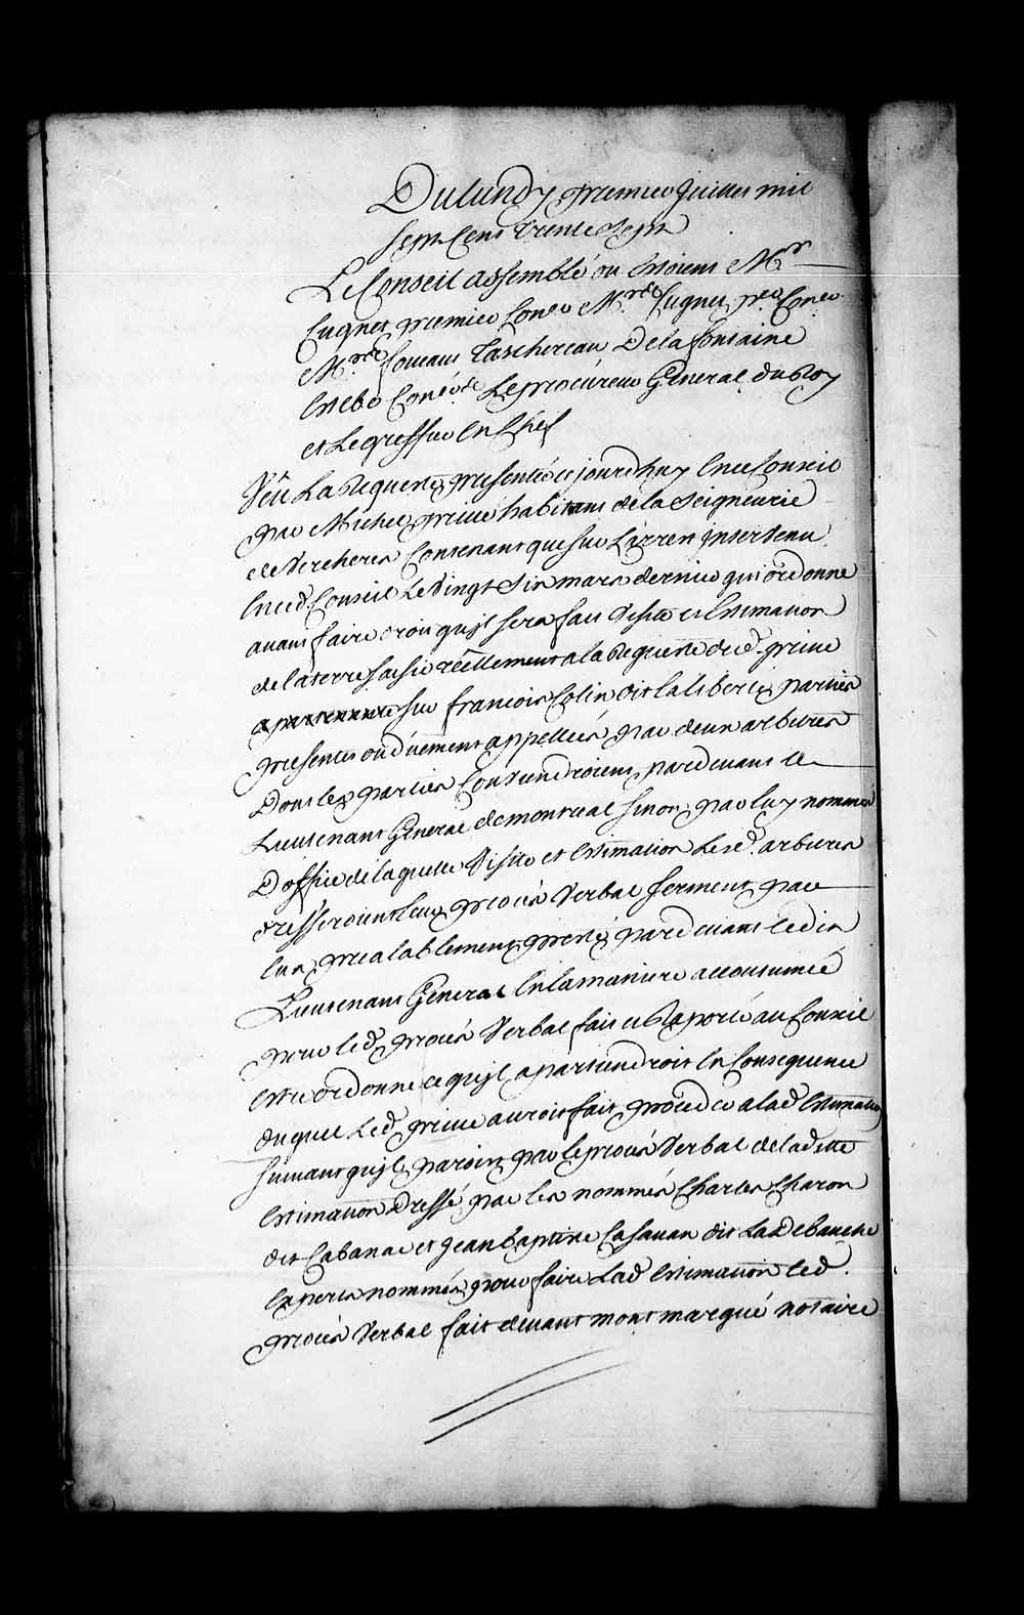 Du lundy premier Juillet mil
sept cens trente sept
Le Conseil assemblé ou etoient Mr
Cugnet premier Coner Mrs Cugnet Coner
Mrs foucaut Taschereau De la fontaine
Estebe Coners Le procureur General du Roy
et Le greffier en Chef
Veu La Requeste presentée ce jourd'huy en ce Conseil
par Michel privé habitant de la Seigneurie
de Vercheres Contenant que sur L'arrest intervenu
en ced. Conseil Le Vingt Six mars dernier qui ordonne
avant faire droit qu'jl sera fait Visite et Estimation
de la terre saisie réellement a la Requeste dud. privé
sur francois Colin dit laliberté parties
presentes ou duement appellées par deux arbitres
Dont les parties Conviendroient pardevant le
Lieutenant General de montreal sinon par luy nommés
D'office de laquelle Visite et estimation Lesd. arbitres
dresseroient leur procés Verbal serment par
eux prealablement presté pardevant ledit
Lieutenant General en la maniere accoutumée
pour led. procés Verbal fait et Raporté au Conseil
estre ordonné ce qu'jl apartiendroit en Consequence
duquel Led. privé auroit fait proceder a lad. estimation
suivant qu'jl paroist par le procés Verbal de laditte
estimation Dressé par les nommés Charles Charon
dit Cabanac et Jean baptiste Casavan dit La Debauche
experts nommés pour faire Lad. estimation led.
procés Verbal fait devant montmarqué notaire